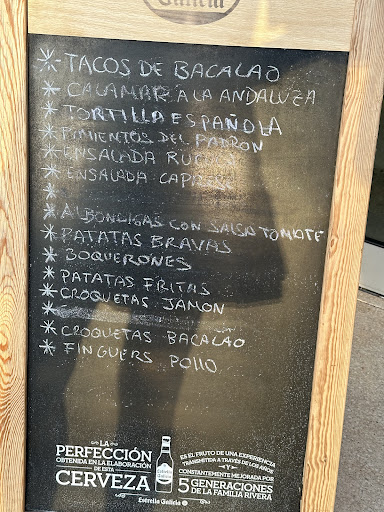 Galicia
* TACOS DE BACALAO
* CALAMAR A LA ANDALUZA
* TORTILLA ESPAÑOLA
* PIMIENTOS DEL PADRON
* ENSALADA RUCULA
* ENSALADA CAPRESE
*
* ALBONDIGAS CON SALSA TOMATE
* PATATAS BRAVAS
* BOQUERONES
* PATATAS FRITAS
* CROQUETAS JAMON
*
* CROQUETAS BACALAO
* FINGUERS POLLO
LA
PERFECCIÓN
OBTENIDA EN LA ELABORACIÓN
DE ESTA
CERVEZA
ES EL FRUTO DE UNA EXPERIENCIA
TRANSMITIDA A TRAVÉS DE LOS AÑOS
Y
CONSTANTEMENTE MEJORADA POR
5 GENERACIONES
DE LA FAMILIA RIVERA
Estrella Galicia